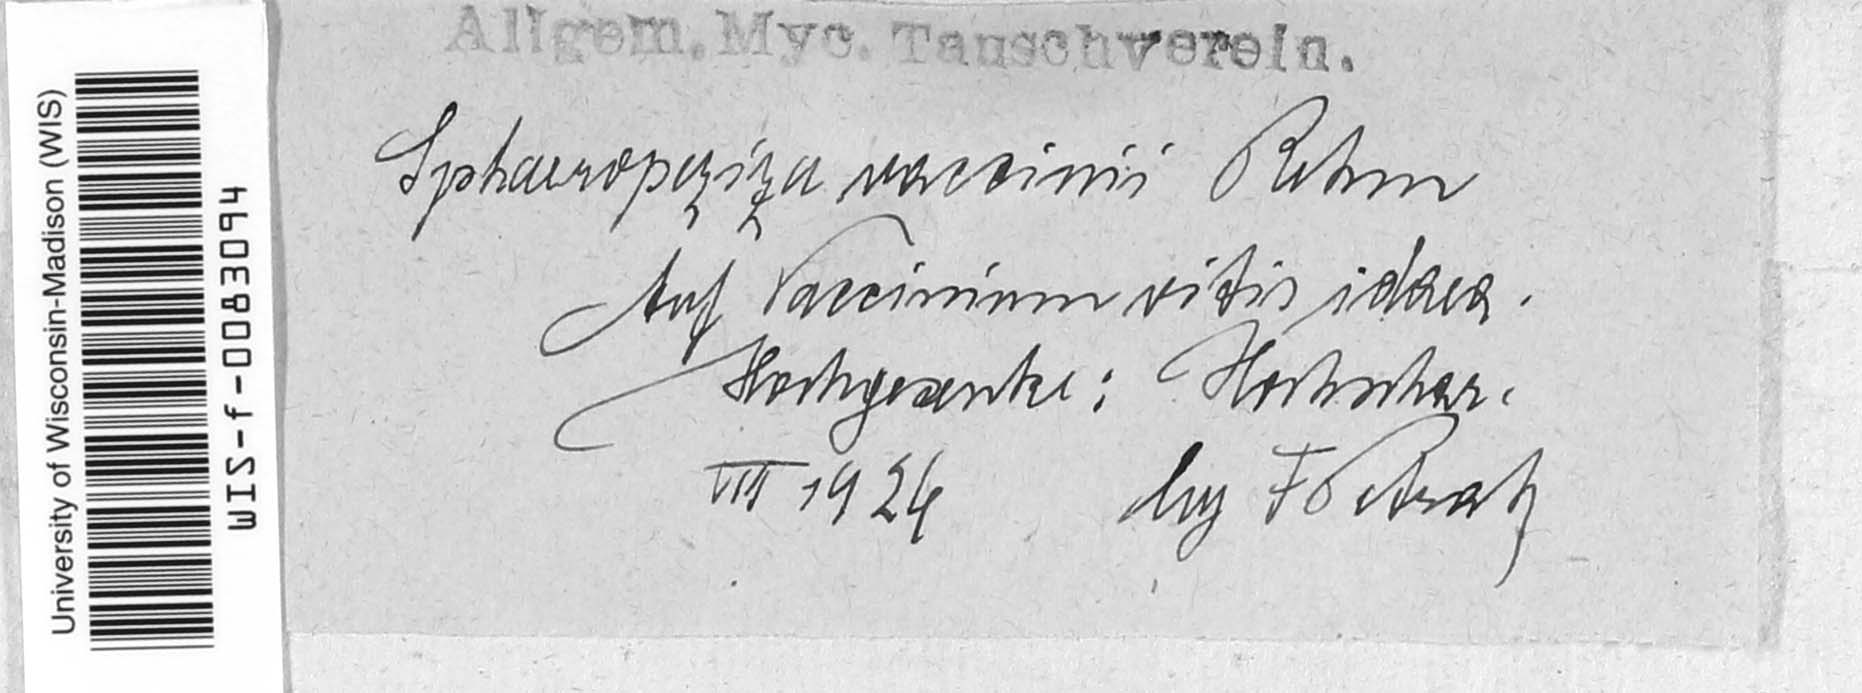 Allgem. Myc. Tauschverein.
Sphaeropeziza vaccinii Rehm
Auf Vaccinium vitis idaea.
Hochgesenke: Hochschar.
VIII 1924 leg F Petrak
University of Wisconsin-Madison (WIS)
WIS-f-0083094